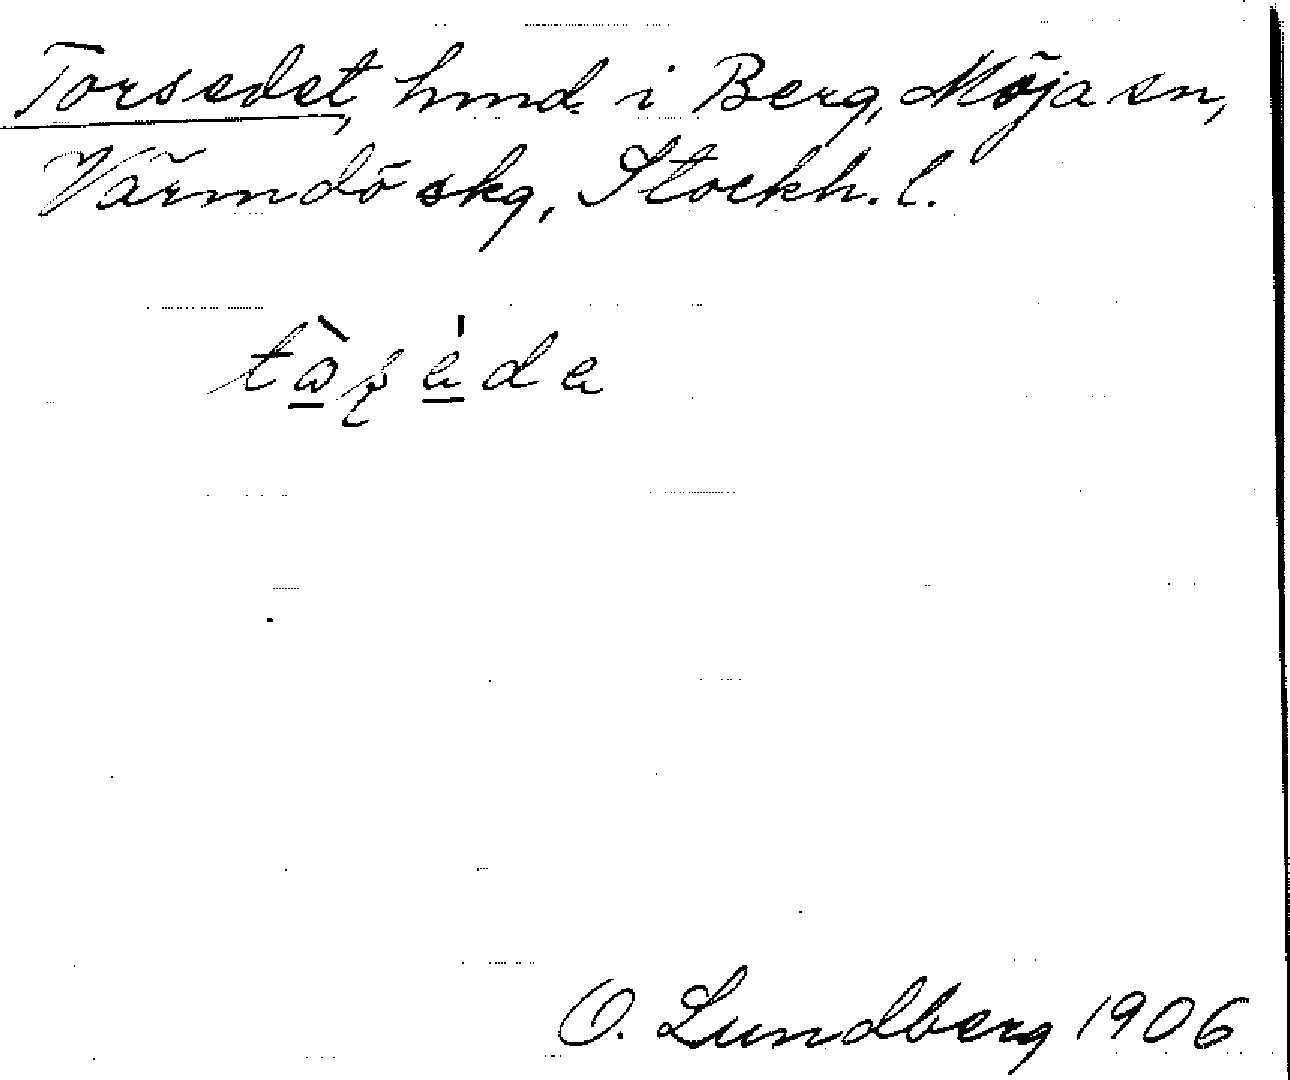 Torsedet, hmd. i Berg, Möja sn,
Värmdö skg, Stockh. l.
tɷ̀ʂéde
O. Lundberg 1906